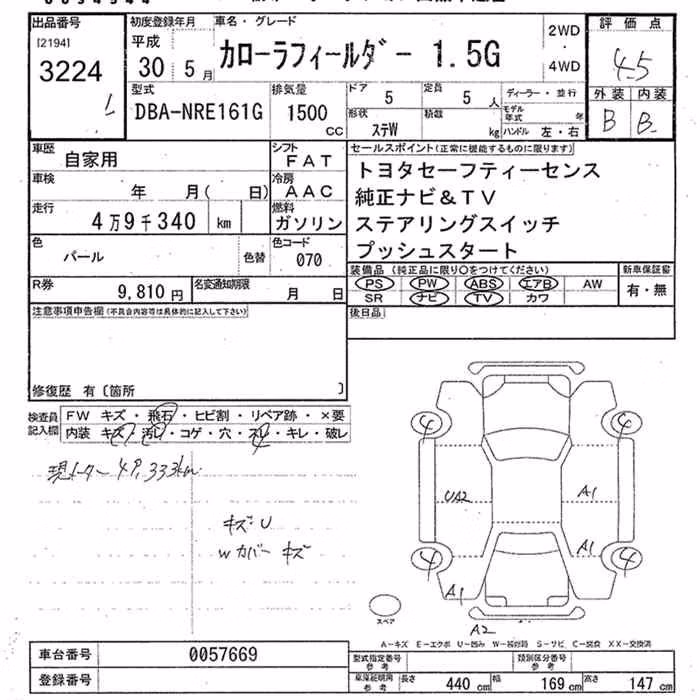 出品番号 初度登録年月 車名・グレード 評価点
[2194] 平成 カローラフィールダー 1.5G 2WD
3224 30 5月 4WD 4.5
1 型式 排気量 ドア 定員 ディーラー・並行 外装 内装
DBA-NRE161G 1500 cc 5 5人 モデル年式 年 B B
形状 ステW 積載 kg ハンドル 左・右
車歴 自家用 シフト FAT セールスポイント(正常に機能するものに限ります)
車検 年 月( 日) 冷房 AAC トヨタセーフティーセンス
走行 4万9千340 km 燃料 ガソリン 純正ナビ&TV
ステアリングスイッチ
色 パール 色替 色コード 070 プッシュスタート
装備品(純正品に限り○をつけてください) 新車保証書
R券 9,810円 名変通知期限 月 日 PS PW ABS エアB AW 有・無
SR ナビ TV カワ
注意事項申告欄(不具合内容等は具体的に記入して下さい) 後日品
修復歴 有〔箇所 〕
検査員記入欄 FW キズ・飛石・ヒビ割・リペア跡・×要
内装 キズ・汚レ・コゲ・穴・スレ・キレ・破レ
現メーター 49,333km
キズ U
Wカバー キズ
4 4
UA2 A1
A1
4 4
A1
スペア
A2
A-キズ E-エクボ U-凹み W-補修跡 S-サビ C-腐食 XX-交換済
車台番号 0057669 型式指定番号 参考 類別区分番号 参考
登録番号 車庫証明用 参考 長さ 440 cm 幅 169 cm 高さ 147 cm